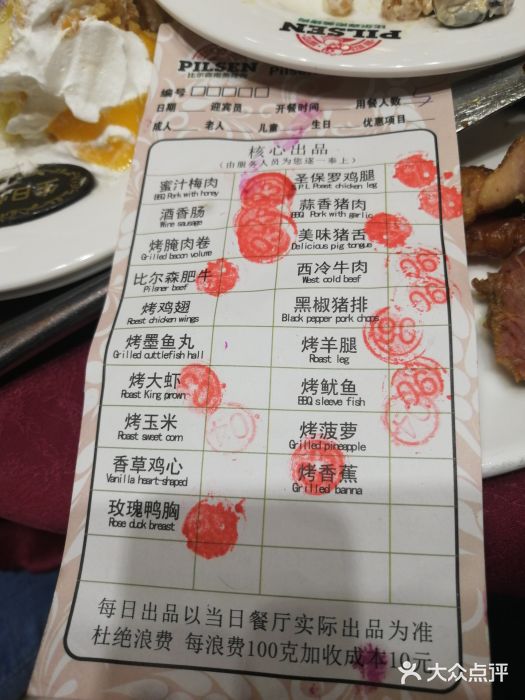 PILSEN
PILSEN
比尔森
编号□□□□□
日期 迎宾员 开餐时间 用餐人数 5
成人 老人 儿童 生日 优惠项目
核心出品
(由服务人员为您逐一奉上)
蜜汁梅肉 圣保罗鸡腿
BBQ Pork with honey S.P.L Roast chicken leg
酒香肠 蒜香猪肉
Wine sausage BBQ Pork with garlic
烤腌肉卷 美味猪舌
Grilled bacon volume Delicious pig tongue
比尔森肥牛 西冷牛肉
Pilsner beef West cold beef
烤鸡翅 黑椒猪排
Roast chicken wings Black pepper pork chops
烤墨鱼丸 烤羊腿
Grilled cuttlefish hall Roast leg
烤大虾 烤鱿鱼
Roast King prown BBQ sleeve fish
烤玉米 烤菠萝
Roast sweet corn Grilled pineapple
香草鸡心 烤香蕉
Vanilla heart-shaped Grilled banna
玫瑰鸭胸
Rose duck breast
每日出品以当日餐厅实际出品为准
杜绝浪费 每浪费100克加收成本10元
大众点评